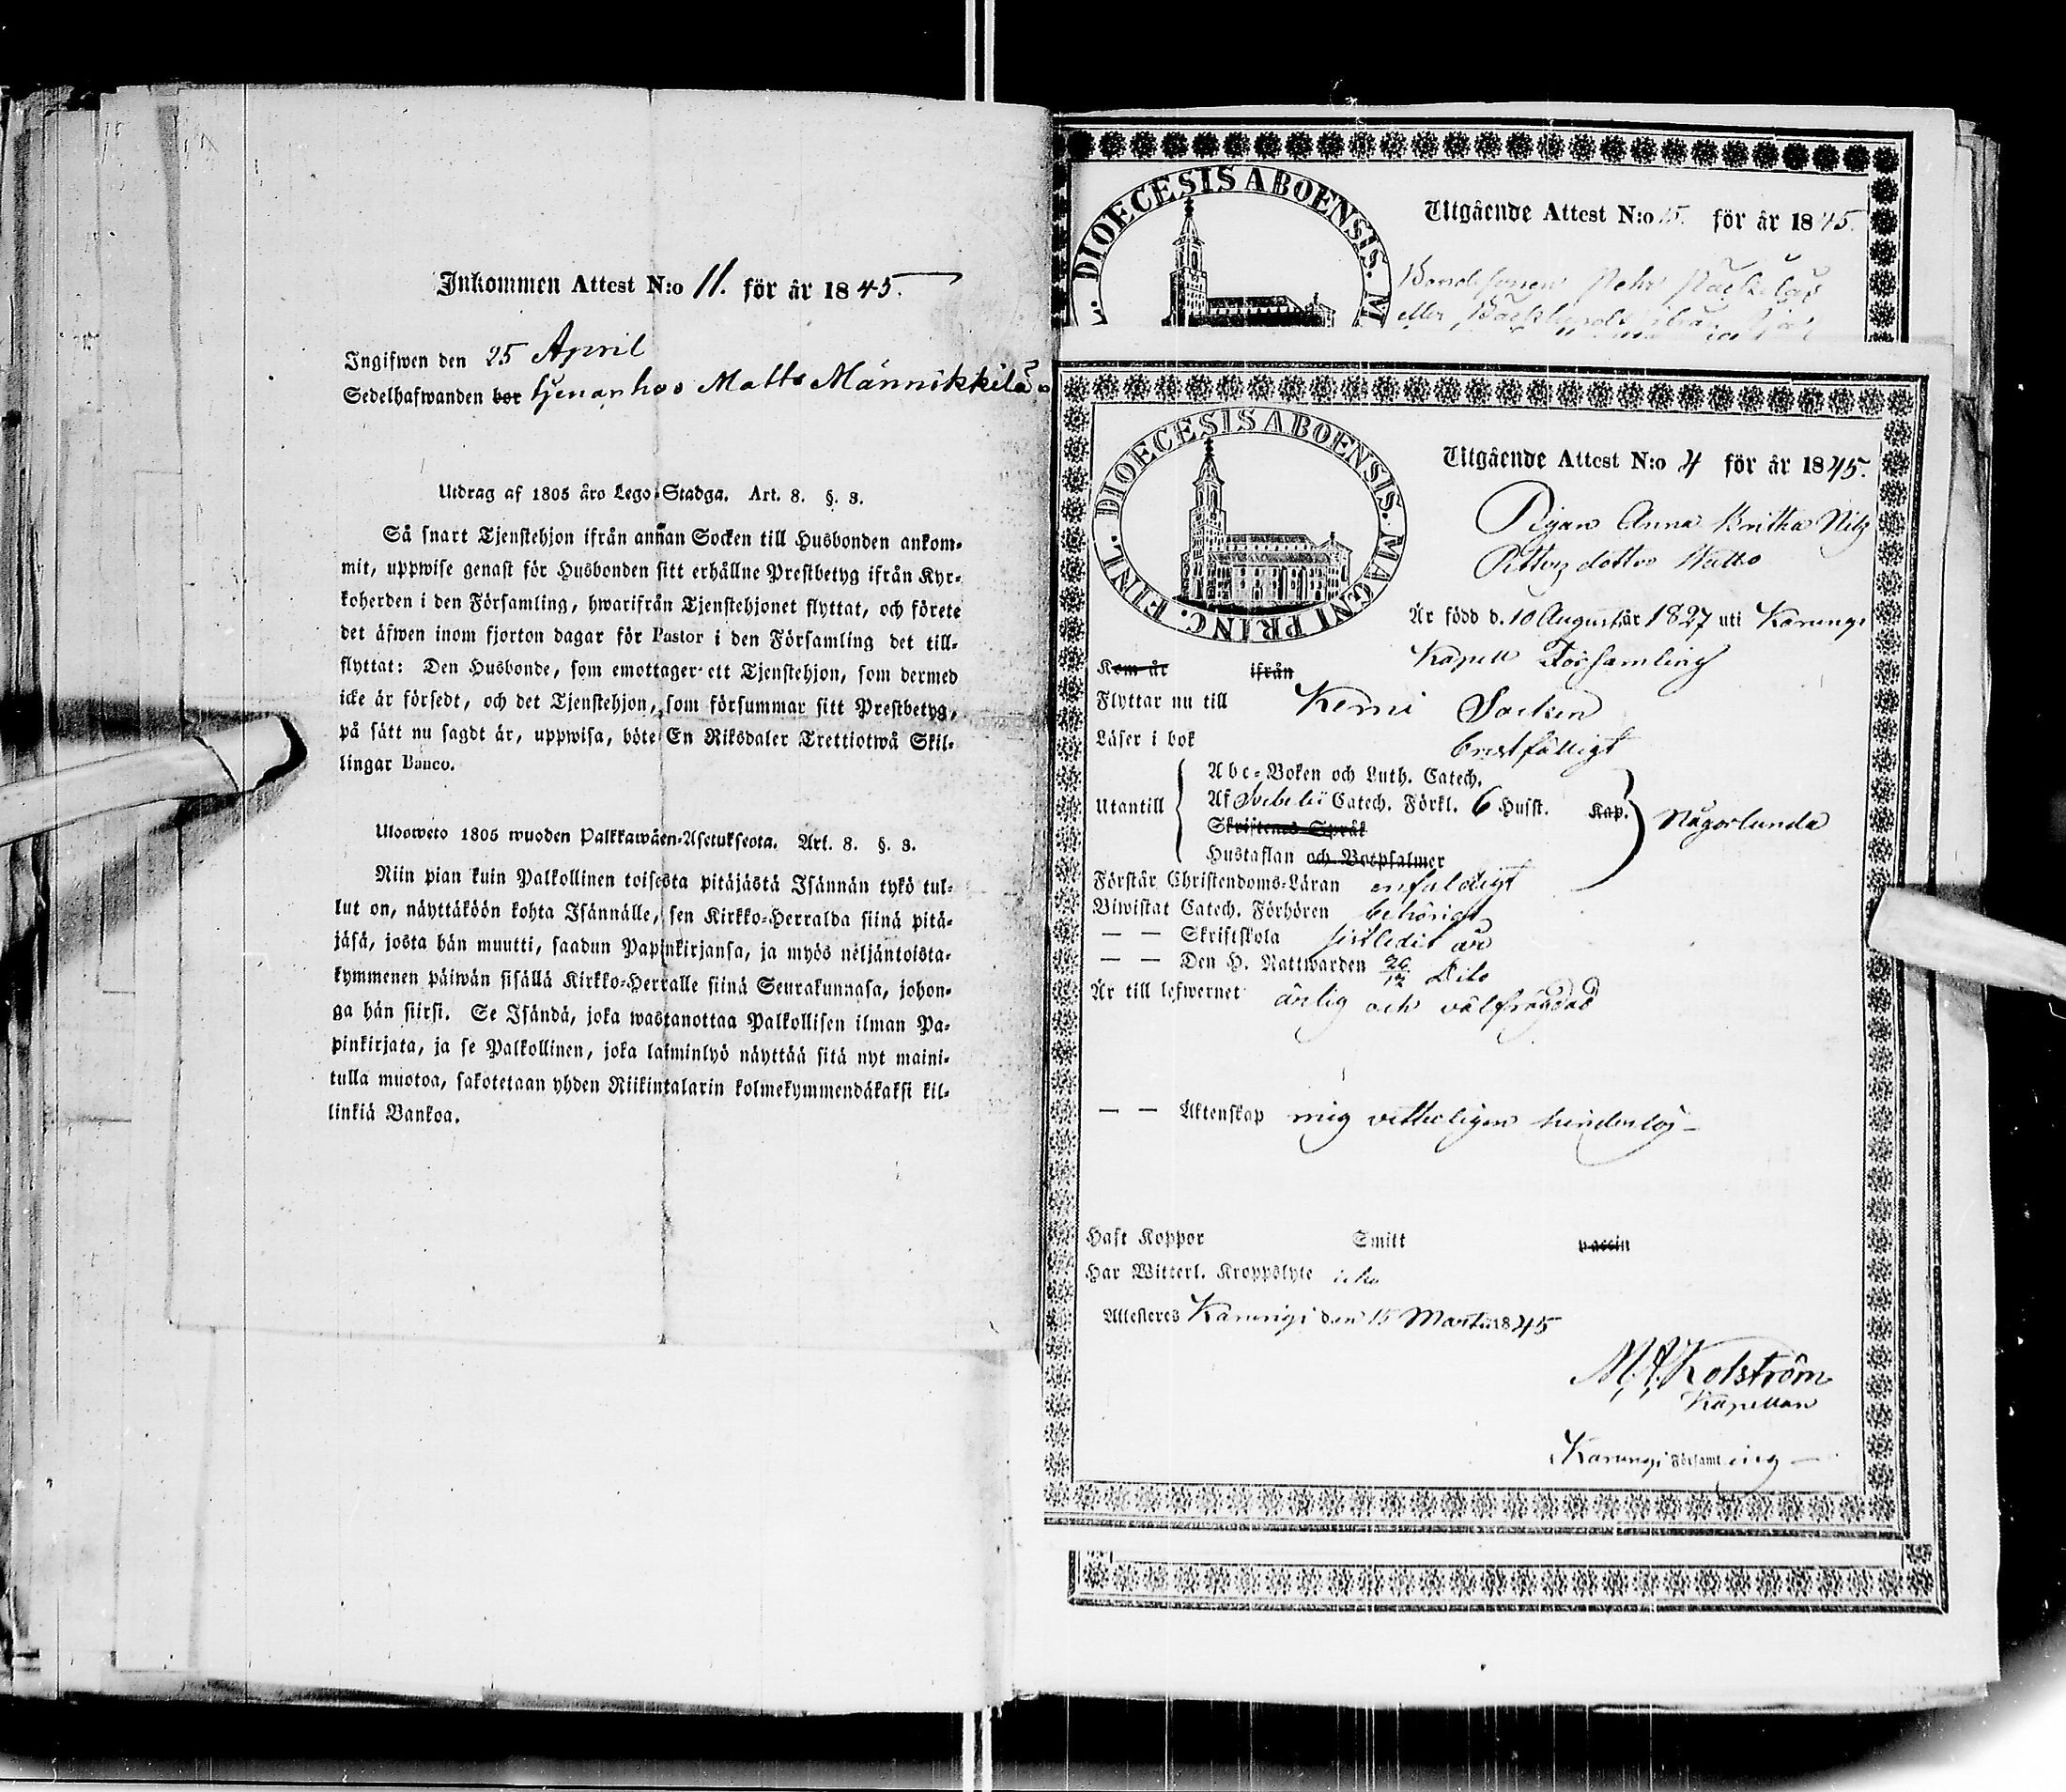 Inkommen Attest N:o 11. för år 1845.
Ingifwen den 25 April
Sedelhafwanden bor tjenar hos Matts Männikkilä
Utdrag af 1805 års Lego-Stadga. Art. 8. §. 8.
Så snart Tjenstehjon ifrån annan Socken till Husbonden ankom-
mit, uppwise genast för Husbonden sitt erhållne Prestbetyg ifrån Kyr-
koherden i den Församling, hwarifrån Tjenstehjonet flyttat, och förete
det äfwen inom fjorton dagar för Pastor i den Församling det till-
flyttat: Den Husbonde, som emottager ett Tjenstehjon, som dermed
icke är försedt, och det Tjenstehjon, som försummar sitt Prestbetyg,
på sätt nu sagdt är, uppwisa, böte En Riksdaler Trettiotwå Skil-
lingar Banco.
Ulosweto 1805 wuoden Palkkawäen-Asetuksesta. Art. 8. §. 8.
Niin pian kuin Palkollinen toisesta pitäjästä Isännän tykö tul-
lut on, näyttäköön kohta Isännälle, sen Kirkko-Herralda siinä pitä-
jäsä, josta hän muutti, saadun Papinkirjansa, ja myös neljäntoista-
kymmenen päiwän sisällä Kirkko-Herralle siinä Seurakunnasa, johon-
ga hän siirsi. Se Isändä, joka wastanottaa Palkollisen ilman Pa-
pinkirjata, ja se Palkollinen, joka laiminlyö näyttää sitä nyt maini-
tulla muotoa, sakotetaan yhden Riikintalarin kolmekymmendäkaksi kil-
linkiä Bankoa.
DIOECESIS ABOENSIS. M
Utgående Attest N:o 15. för år 1845.
Bondesonen Pehr
eller
DIOECESIS ABOENSIS. MAGNI PRINC. FINL.
Utgående Attest N:o 4 för år 1845.
Pigan Anna Britha Nils
Petters dotter
Är född d. 10 August år 1827 uti Karungi
Kapell Församling
Kom år ifrån
Flyttar nu till Kemi Socken
Läser i bok bristfälligt
Utantill
Abc-Boken och Luth. Catech.
Af Svebelii Catech. Förkl. 6 Hufst. Kap.
Skriftenes Språk
Hustaflan och Botpsalmer
Någorlunda
Förstår Christendoms-Läran enfaldigt
Biwistat Catech. Förhören behörigt
— — Skriftskola sistledit år
— — Den H. Nattwarden 26/12 Dito
Är till lefwernet ärlig och välfrägdad
— — Äktenskap mig vetterligen hinderlös
Haft Koppor Smitt vaccin
Har Witterl. Kroppslyte icke
Attesteres Karungi den 15 Martii 1845
M. A. Kolström
Kapellan
Karungi Församling